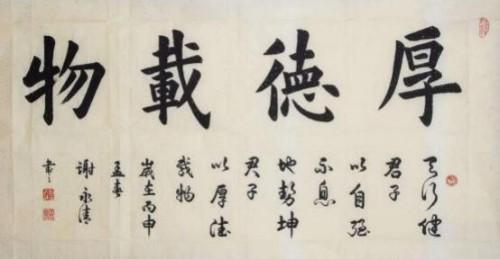 厚德載物
天行健
君子
以自强
不息
地勢坤
君子
以厚德
载物
歲在丙申
孟春
謝永清
書